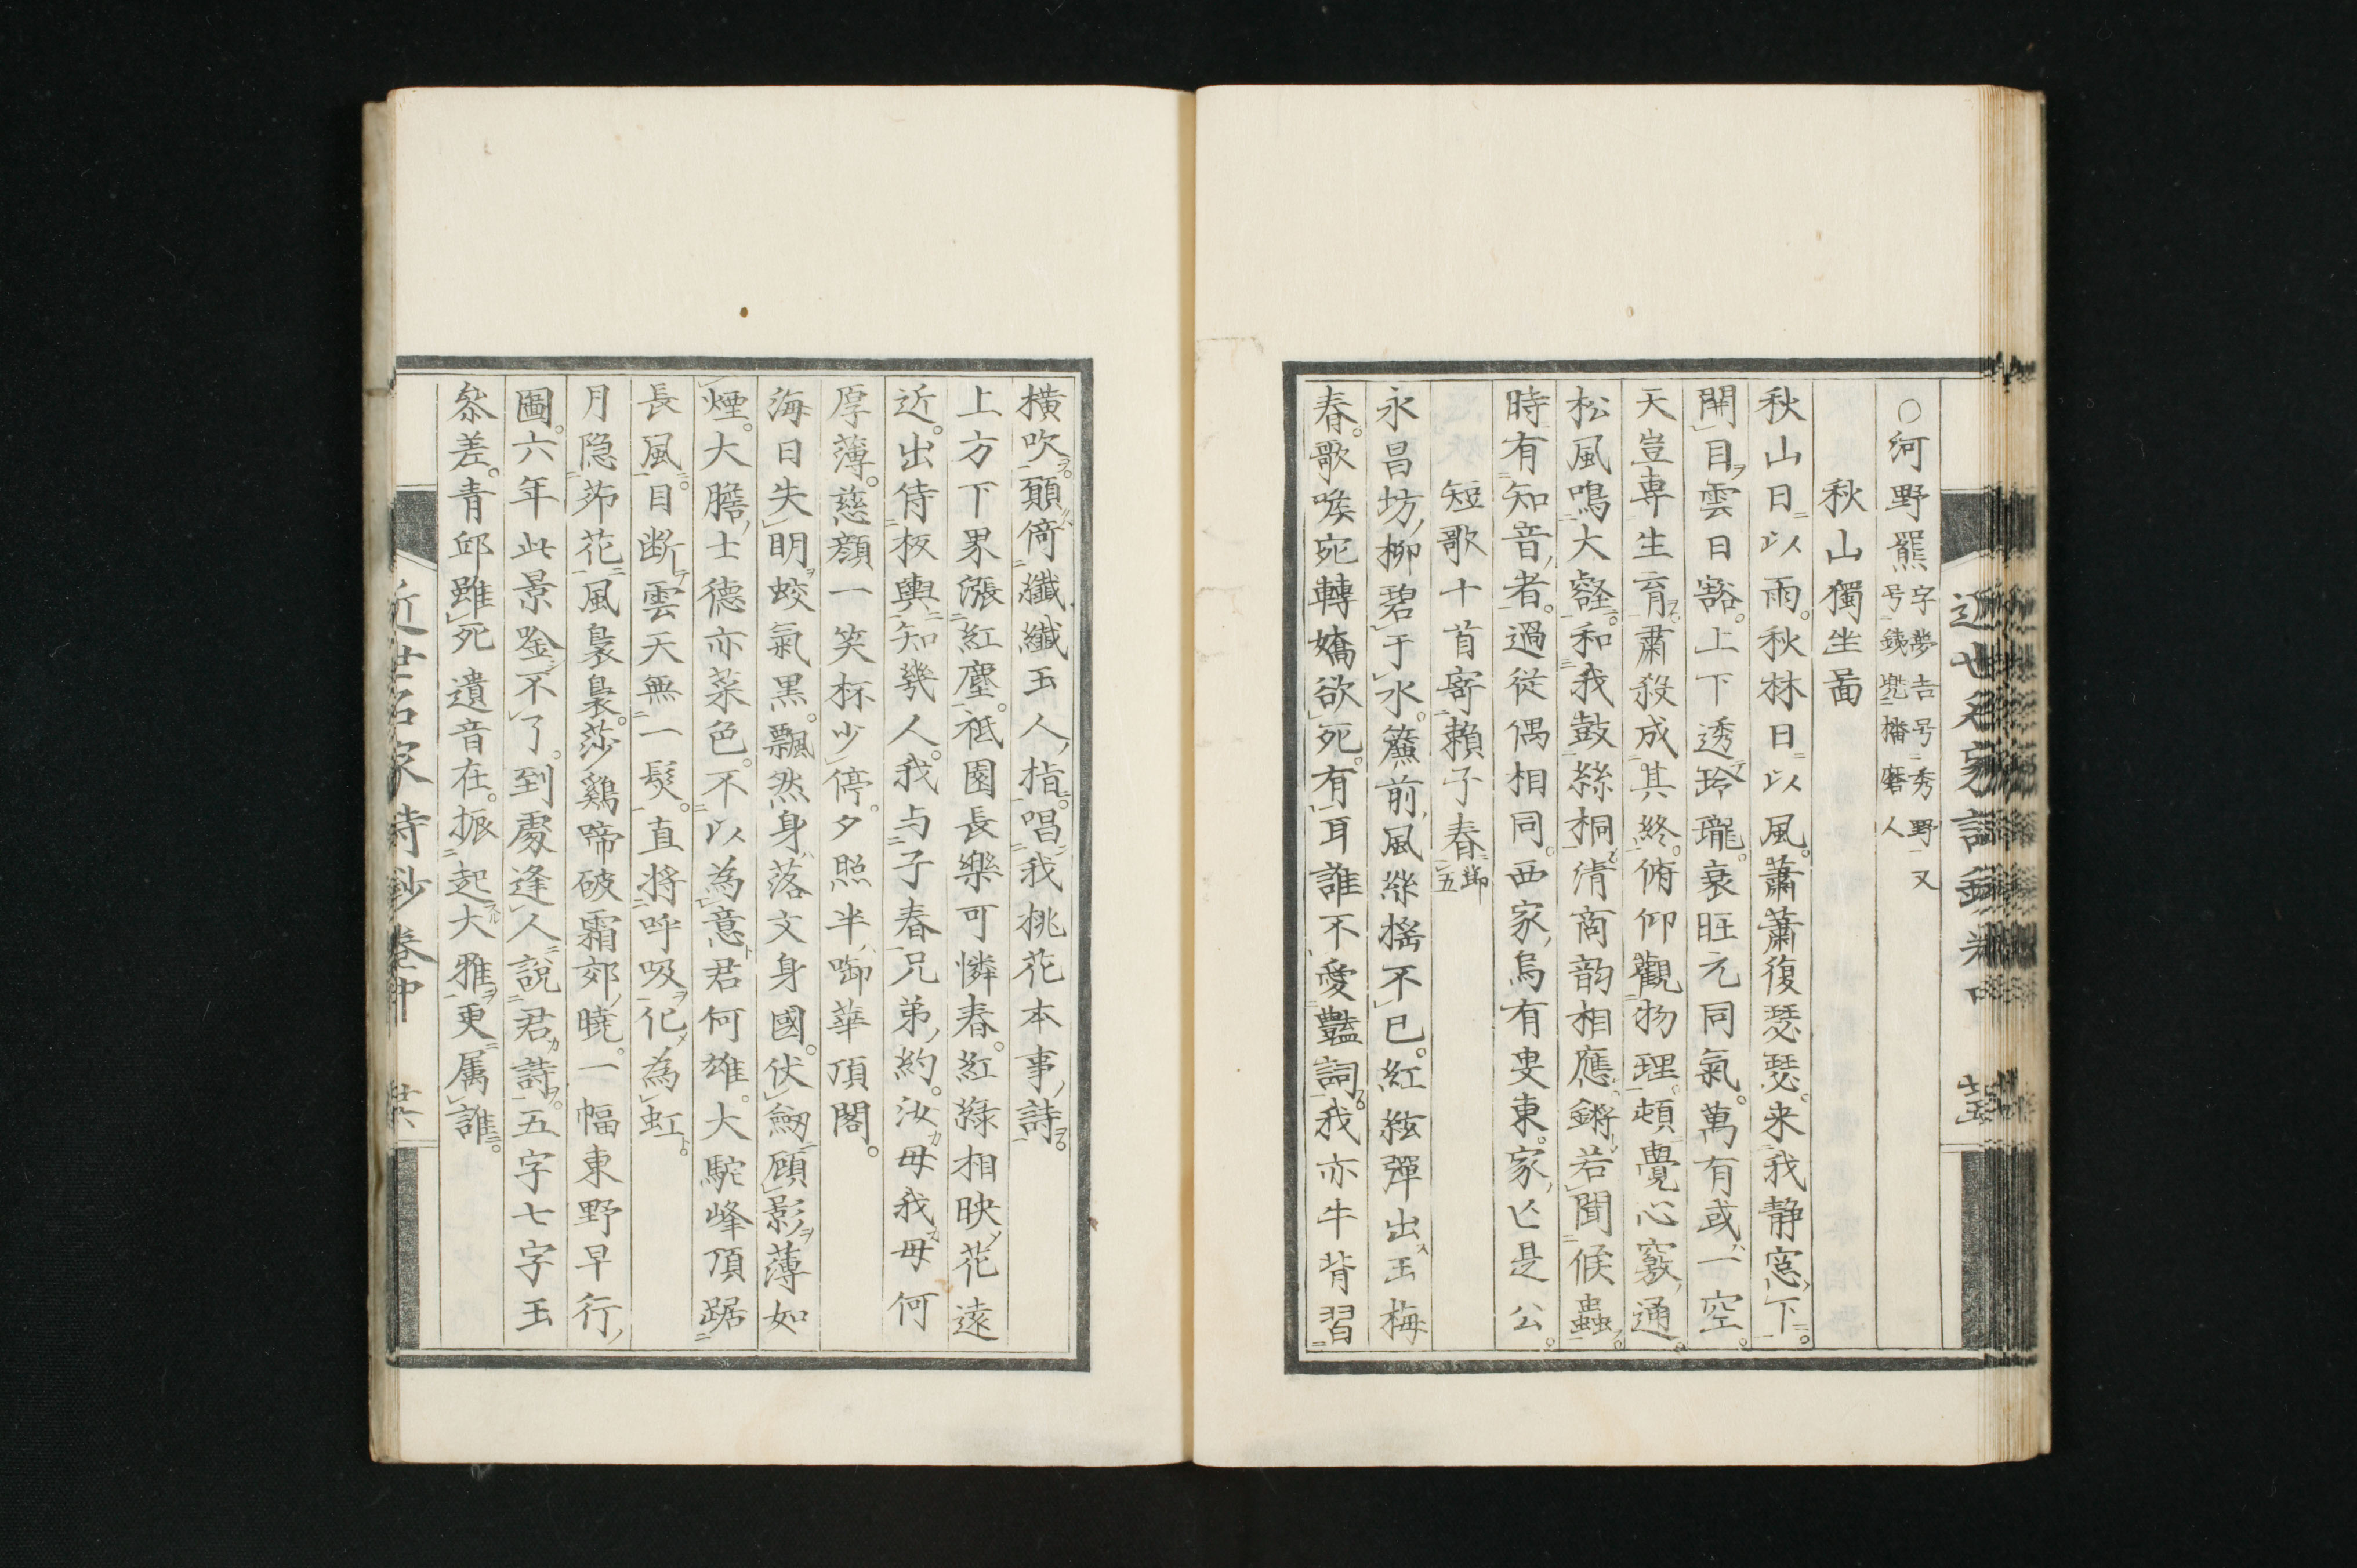 ○河野羆字夢吉号秀野又
号鐵兜播磨人
秋山獨坐啚
秋山日以雨。秋林日以風。蕭蕭復瑟瑟。来我静窓下。
開目雲日豁。上下透玲瓏。衰旺元同氣。萬有或一空。
天豈専生育肅殺成其終。俯仰觀物理。頓覺心竅通。
松風鳴大壑。和我鼓絲桐。清商韵相應。鏘若聞候蟲。
時有知音者。過従偶相同。西家烏有叟東。家亾是公。
短歌十首寄賴子春節五
永昌坊柳碧于水。簾前風絲搖不已。紅絃彈出玉梅
春。歌喉宛轉嬌欲死。有耳誰不愛豔詞。我亦牛背習
横吹。顛倚纖纖玉人指。唱我桃花本事詩。
上方下界漲紅塵。祗園長樂可憐春。紅緑相映花遠
近。出侍板輿知幾人。我与子春兄弟約。汝母我母何
厚薄。慈顔一笑杯少停。夕照半啣華頂閣。
海日失明蛟氣黒。飄然身落文身國。伏劒顧影薄如
煙。大膽士德亦菜色。不以為意君何雄。大駝峰頂踞
長風。目断雲天無一髮。直将呼吸化為虹。
月隐茆花風裊裊。莎鷄啼破霜郊曉。一幅東野早行
圖。六年此景唫不了。到處逢人說君詩。五字七字玉
叅差。青邱雖死遺音在。振起大雅更属誰。
近世名家詩鈔卷中